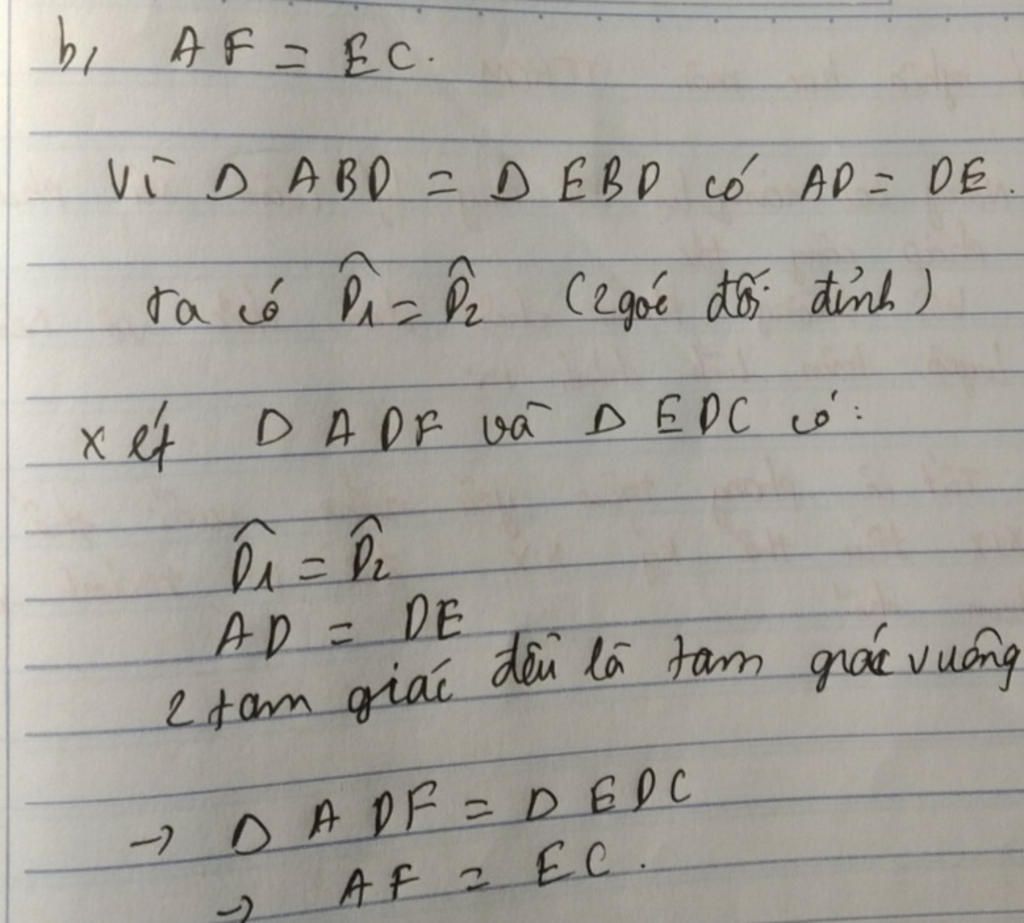 b, AF = EC.
Vì Δ ABD = Δ EBD có AD = DE.
ta có D̂1 = D̂2 (2 góc đối đỉnh)
xét Δ ADF và Δ EDC có:
D̂1 = D̂2
AD = DE
2 tam giác đều là tam giác vuông
→ Δ ADF = Δ EDC
→ AF = EC.